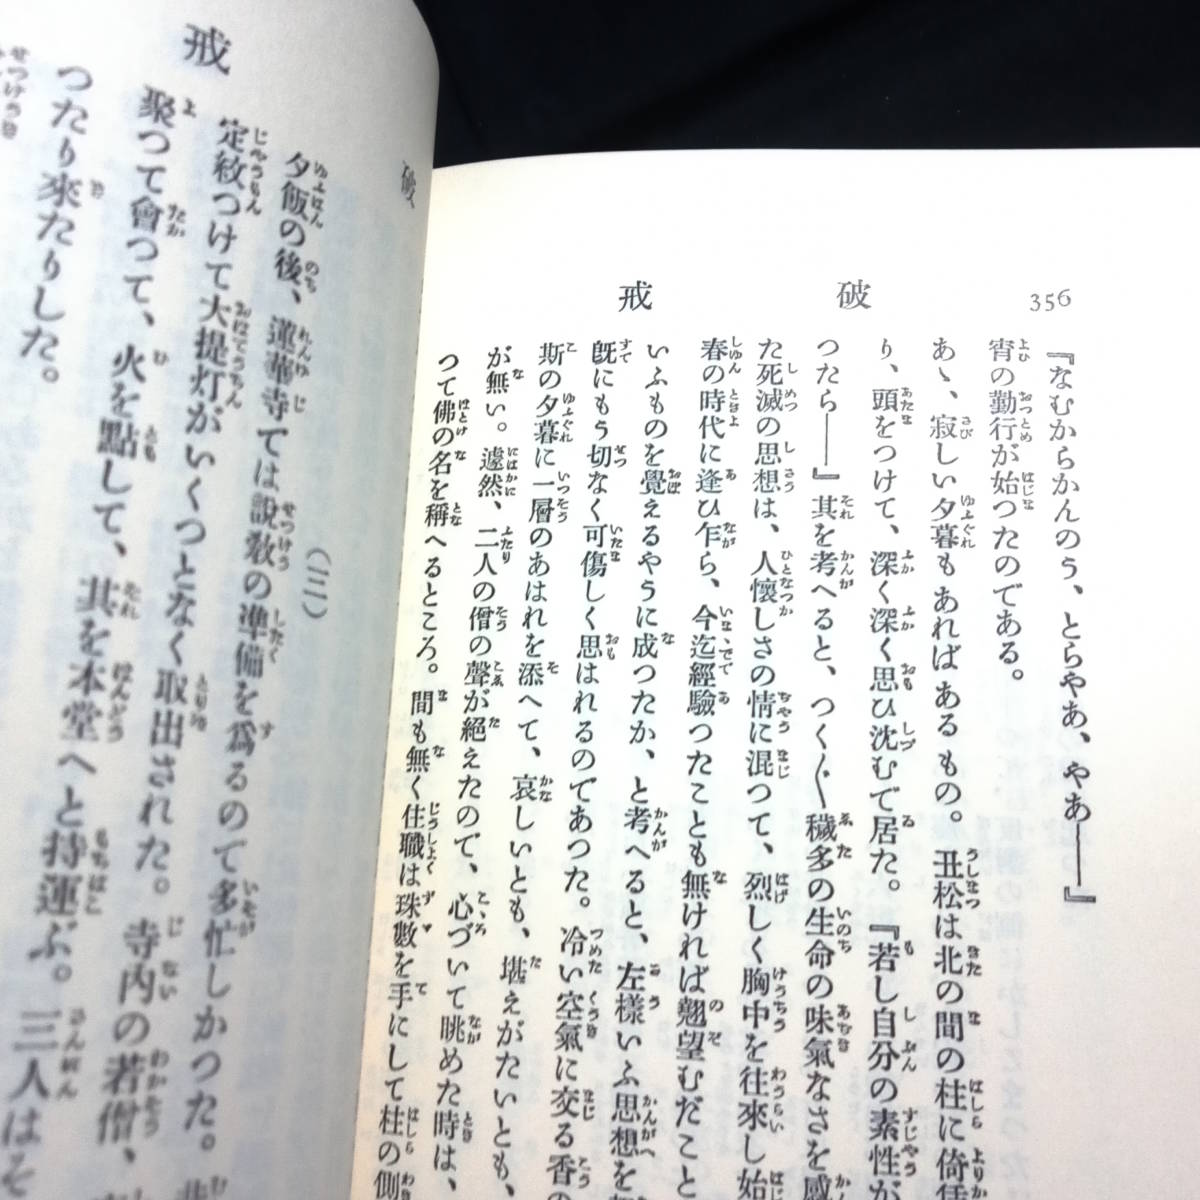 356 破戒
『なむからかんのう、とらやあ、やあ――』
宵の勤行が始つたのである。
あゝ、寂しい夕暮もあればあるもの。丑松は北の間の柱に倚
り、頭をつけて、深く深く思ひ沈むで居た。『若し自分の素性が
つたら――』其を考へると、つく〲穢多の生命の味氣なさを感
た死滅の思想は、人懷しさの情に混つて、烈しく胸中を往來し始
春の時代に逢ひ乍ら、今迄經驗つたことも無ければ翹望むだこと
いふものを覺えるやうに成つたか、と考へると、左樣いふ思想を
既にもう切なく可傷しく思はれるのであつた。冷い空氣に交る香の
斯の夕暮に一層のあはれを添へて、哀しいとも、堪えがたいとも、
が無い。遽然、二人の僧の聲が絶えたので、心づいて眺めた時は、
つて佛の名を稱へるところ。間も無く住職は珠數を手にして柱の側
破戒
(三)
夕飯の後、蓮華寺では說敎の準備を爲るので多忙しかつた。
定紋つけて大提灯がいくつとなく取出された。寺內の若僧、
聚つて會つて、火を點して、其を本堂へと持運ぶ。三人はそ
つたり來たりした。